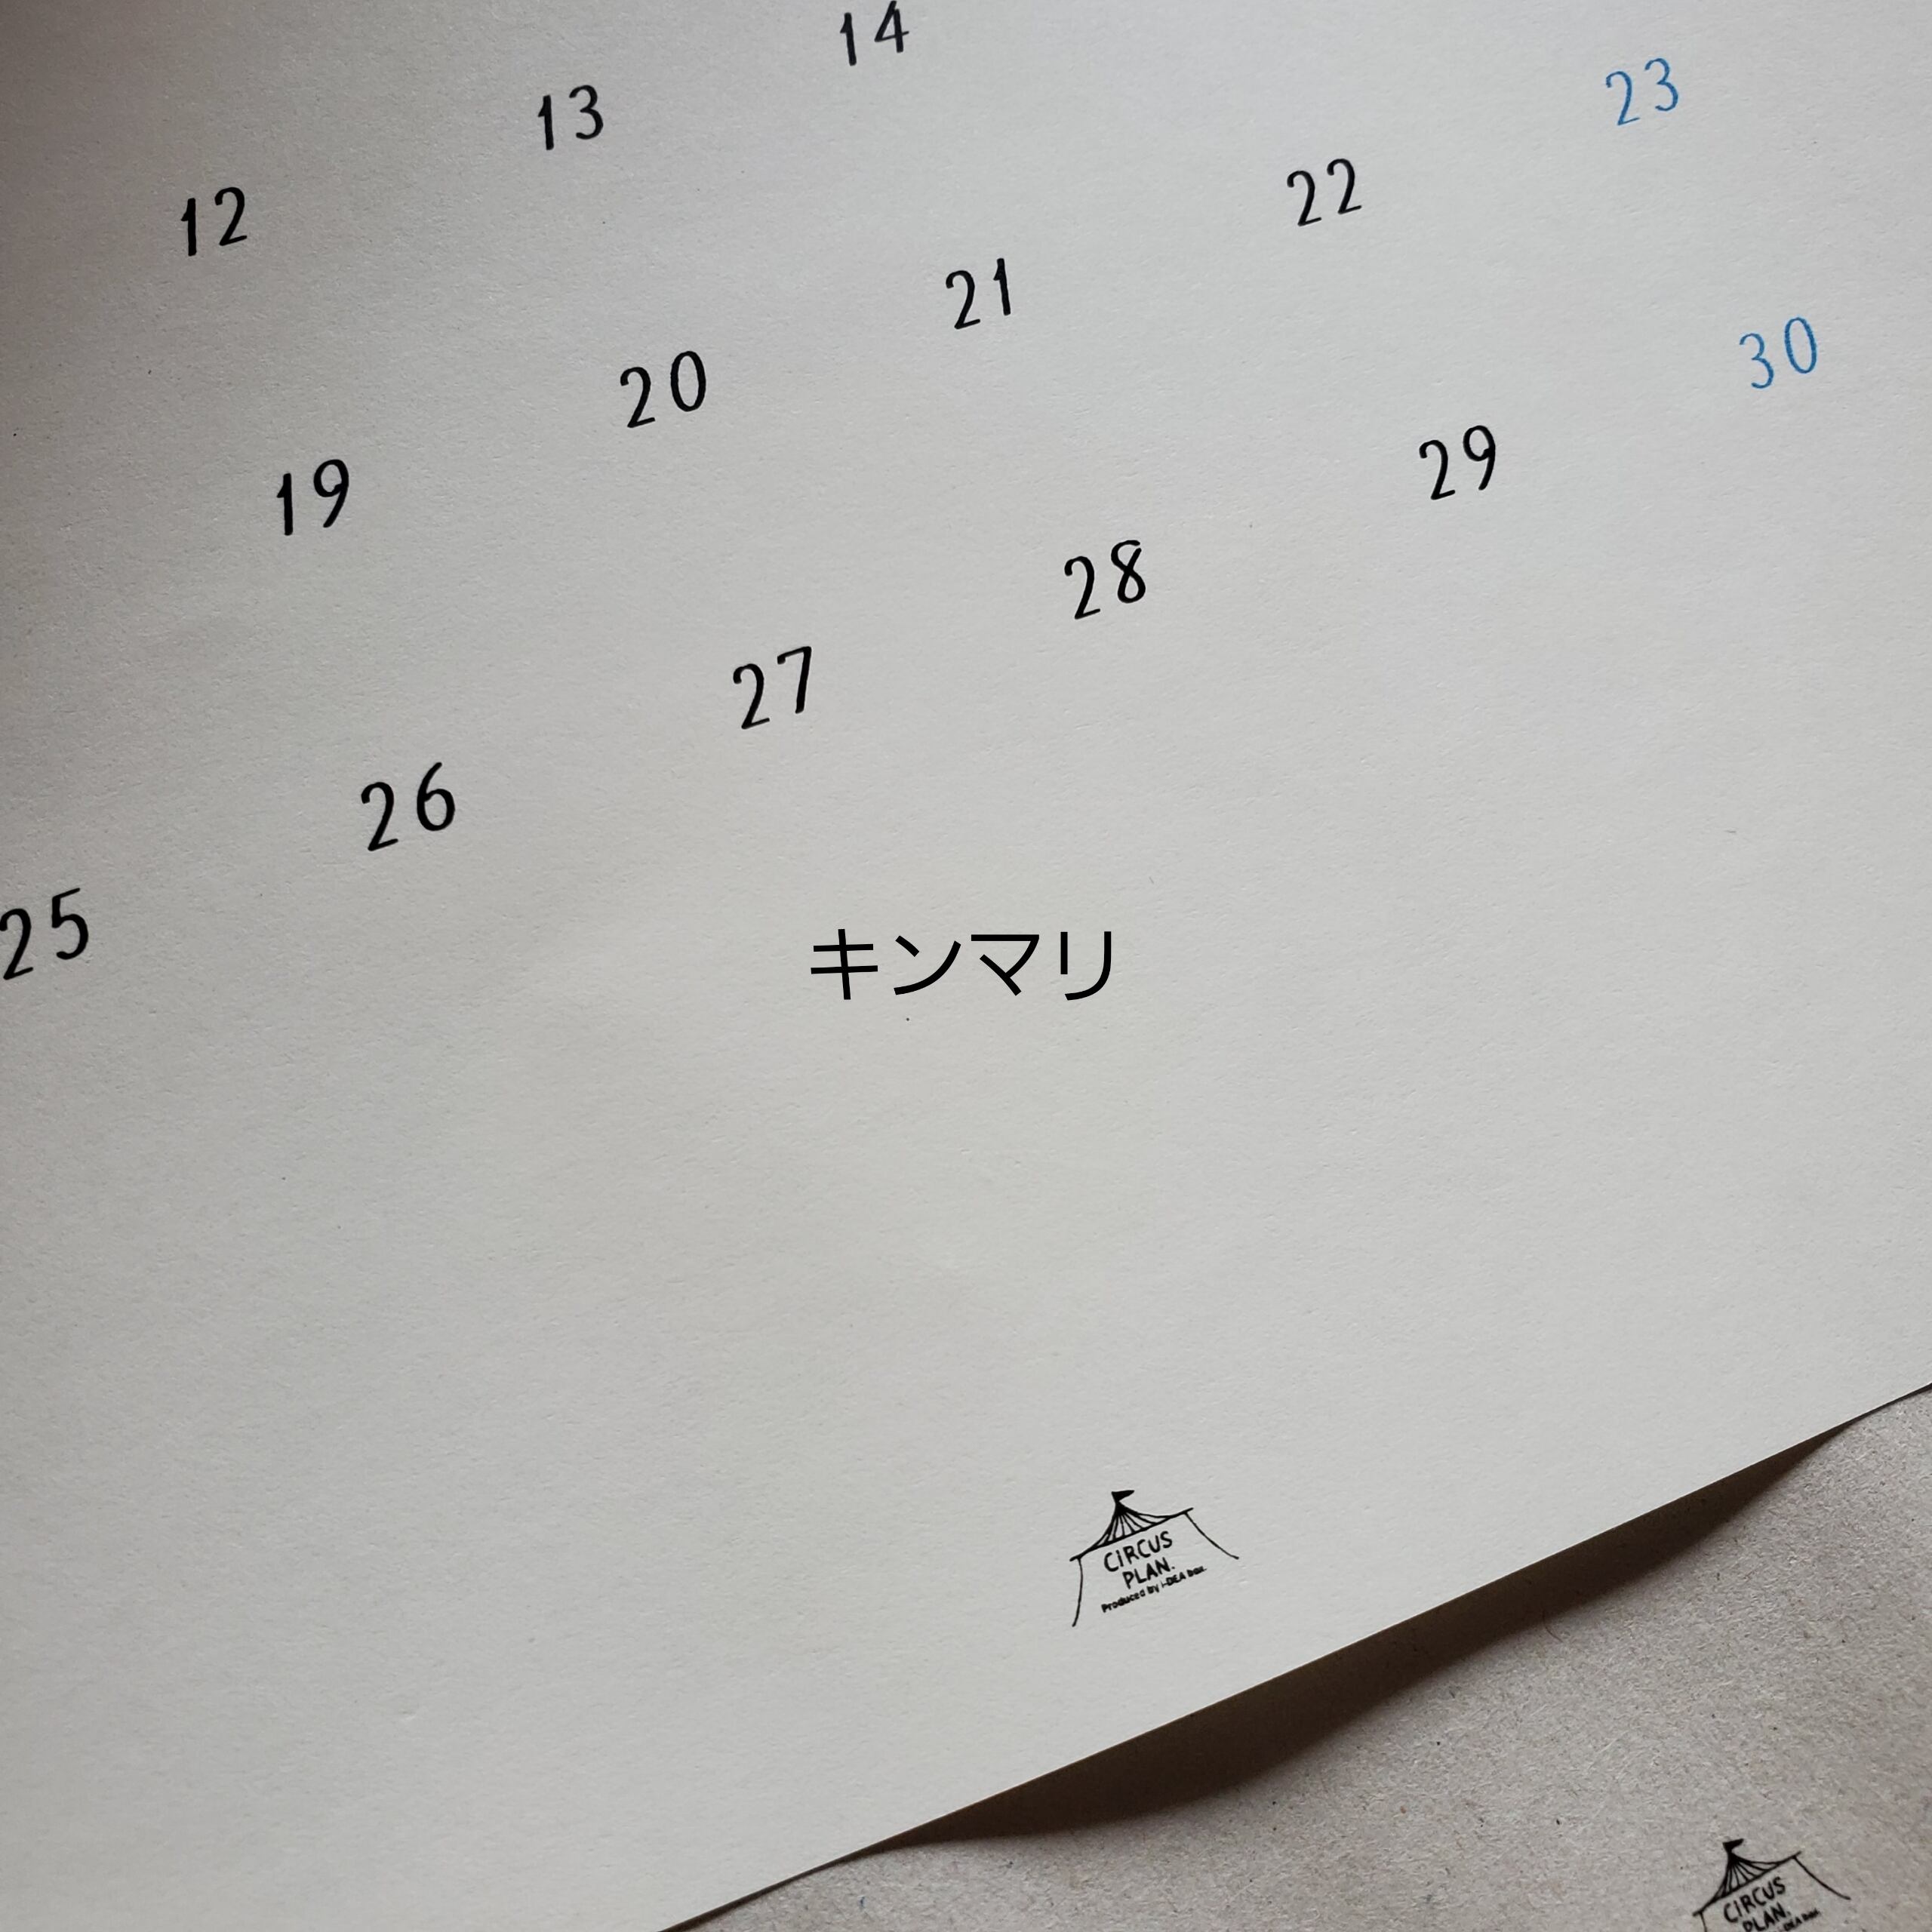 12 13 14
19 20 21 22 23
25 26 27 28 29 30
キンマリ
CIRCUS
PLAN.
Produced by i-DEA box.
CIRCUS
PLAN.